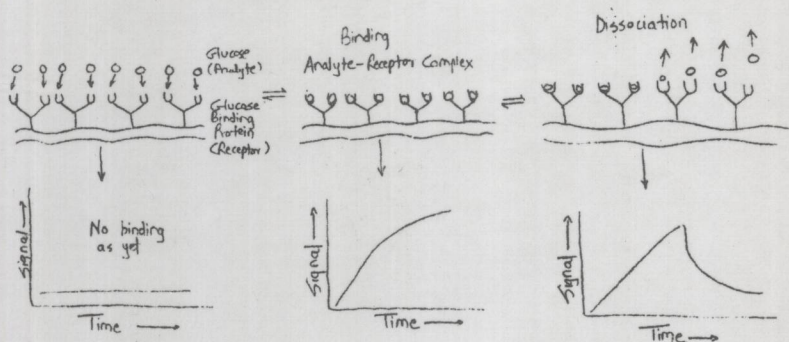 Glucose
(Analyte)
Glucose
Binding
Protein
(Receptor)
Binding
Analyte-Receptor Complex
Dissociation
Signal
No binding
as yet
Time
Signal
Time
Signal
Time